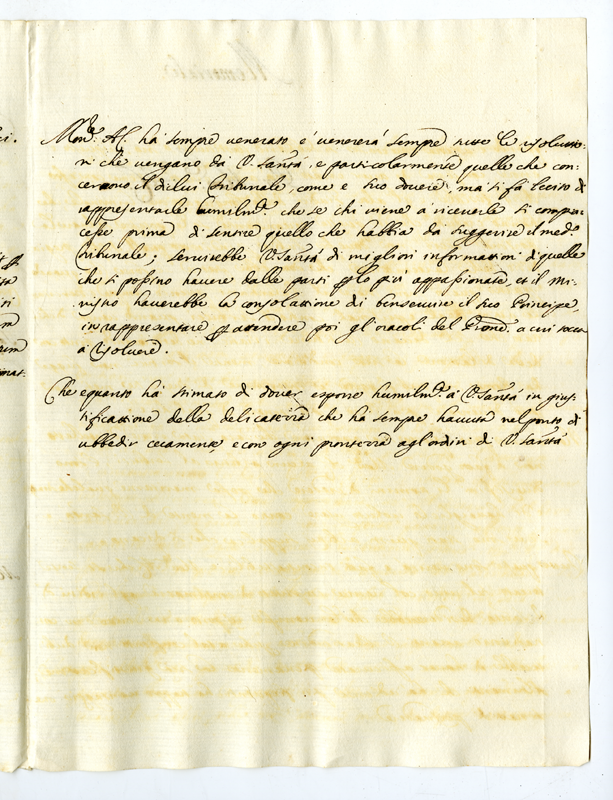 ha sempre venerato e venererà sempre tutte le resolutio-
ni che vengano da V. Santà, e particolarmente quelle che con-
cernono il di lui Tribunale, come e suo dovere, ma si fà lecito di
rappresentarle humilmte. che se chi viene a riceverle si compia-
cesse prima di sentire quello che habbia da suggerire il medo.
Tribunale; servirebbe V. Santà di migliori informationi di quelle
che si possino havere dalle parti plo più appassionate, et il mi-
nistro haverebbe la consolatione di ben servire il suo Principe,
in rappresentare p attendere poi gl'oracoli del Prone. a cui tocca
à risolvere.
Che è quanto hà stimato di dover esporre humilmte. à V. Santà in gius-
tificatione della delicatezza che hà sempre havuta nel ponto di
ubbedir cecamente, e con ogni prontezza agl'ordini di V. Santà